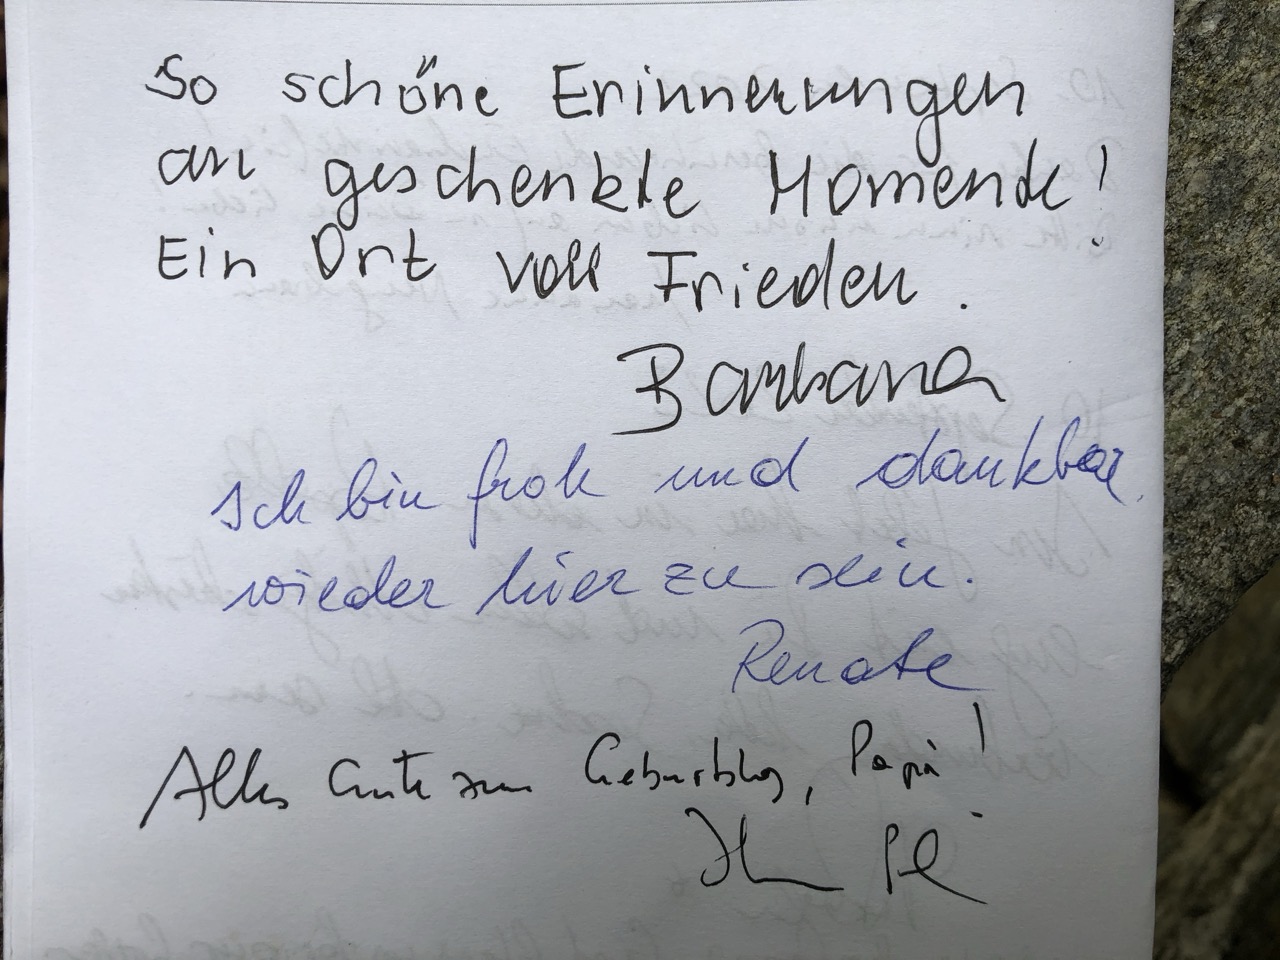 So schöne Erinnerungen
an geschenkte Momente!
Ein Ort voll Frieden.
Barbara
Ich bin froh und dankbar,
wieder hier zu sein.
Renate
Alles Gute zum Geburtstag, Papa!